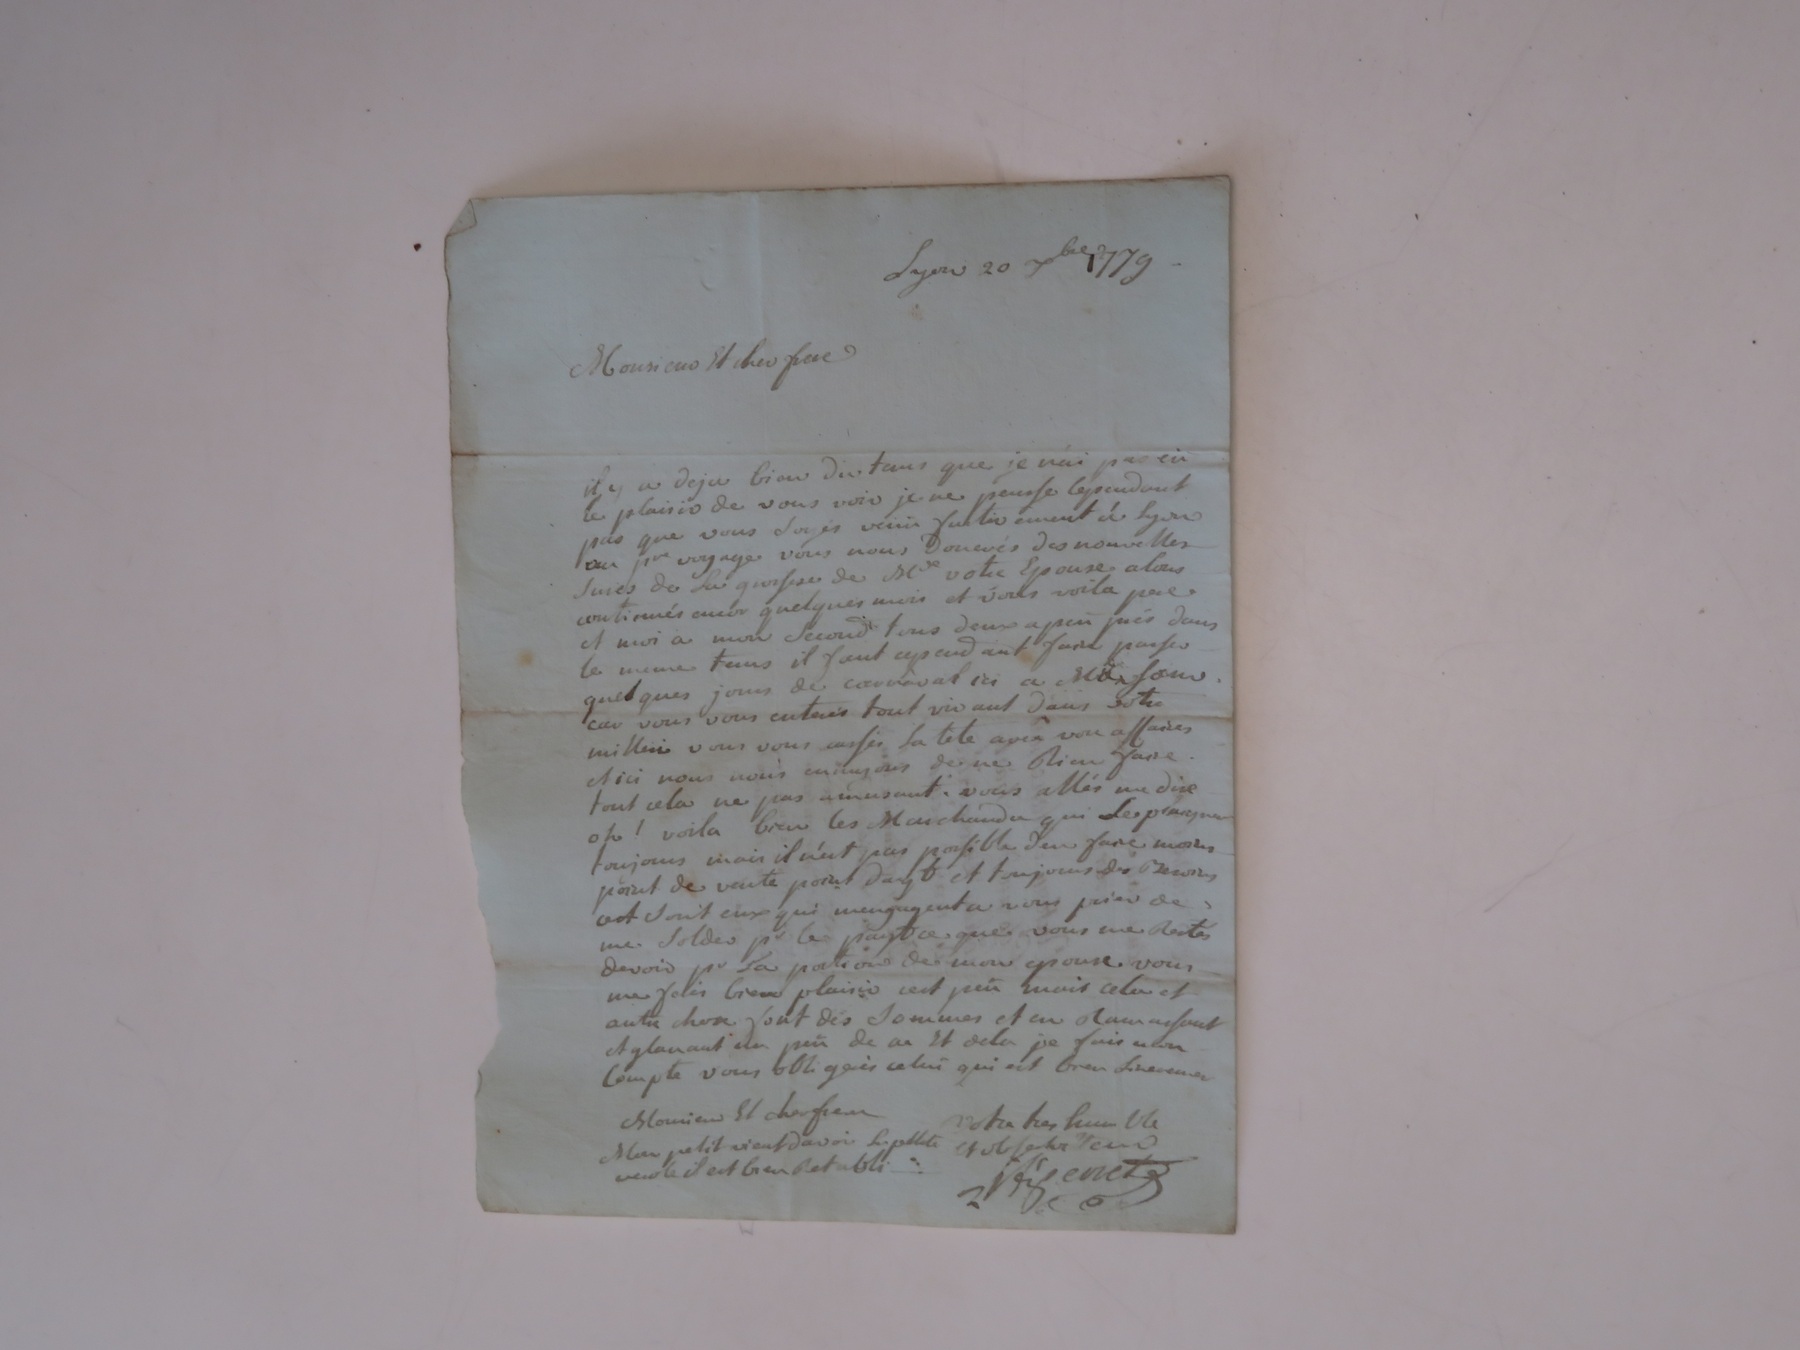 Lyon 20 Xbre 1779
Monsieur Et cher frere
il y a deja bien du tems que je n'ai pas eü
le plaisir de vous voir je ne pensse cependant
pas que vous soyés venir furtivement à Lyon
au pr voyage vous nous donerés des nouvelles
sures de la grossesse de Mde votre Epouse alons
continués encor quelques mois et vous voila pere
et moi a mon second tous deux a peü prés dans
le meme tems il faut cependant faire passer
quelques jours de carnaval ici a Mde sœur
car vous vous enterés tout vivant dans votre
millieu vous vous cassés la tete avec vos affaires
et ici nous nous ennuyons de ne Rien faire.
tout cela ne pas amusant. vous allés me dire
oh! voila bien les Marchands qui se plaignent
toujours mais il n'est pas possible d'en faire moins
point de vente point dargt et toujours des Besoins
cest sont eux qui mengagent a vous prier de
me solder pr le payt ce que vous me Restés
devoir pr La portion de mon epouse vous
me ferés bien plaisir cest peü mais cela et
autre chose font des sommes et en Ramassant
et glanant un peü de ça Et dela je fais mon
Compte vous obligerés celui qui est bien sincerement
Monsieur Et cher frere
votre tres humble
et ob serviteur
Mon petit vient davoir La petite
verole il est bien Retabli